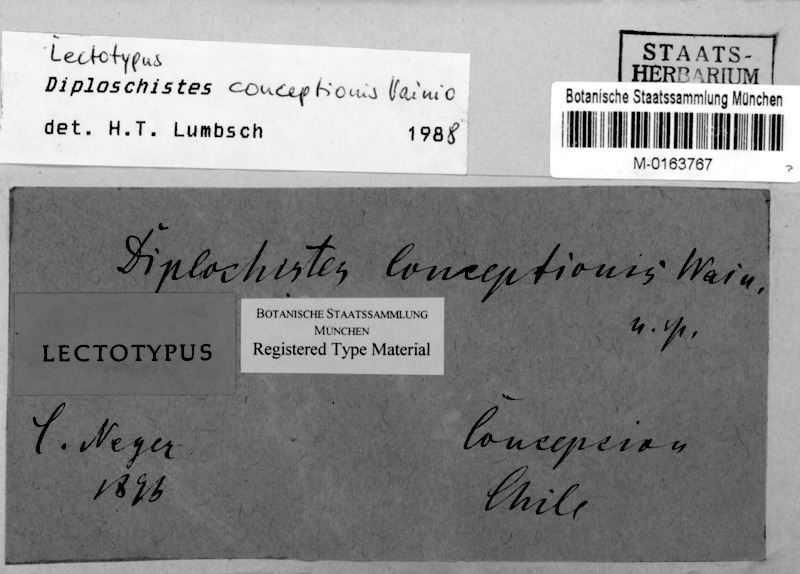 Lectotypus
Diploschistes conceptionis Vainio
det. H.T. Lumbsch 1988
STAATS-
HERBARIUM
Botanische Staatssammlung München
M-0163767
?
Diplochistes Conceptionis Wain.
n. sp.
BOTANISCHE STAATSSAMMLUNG
MÜNCHEN
Registered Type Material
LECTOTYPUS
C. Neger
1896
Concepcion
Chile